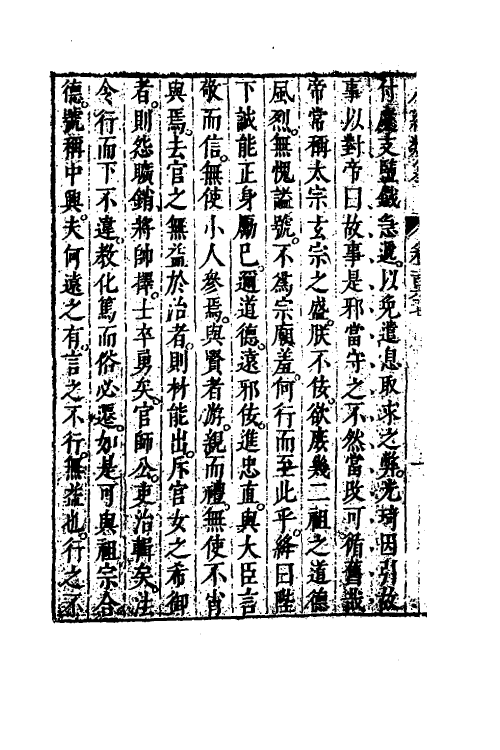 付度支鹽鐵急遞以免遣息取求之弊光琦因引故
事以對帝曰故事是邪當守之不然當改可循舊哉
帝常稱太宗玄宗之盛朕不佞欲庶幾二祖之道德
風烈無愧諡號不爲宗廟羞何行而至此乎絳曰陛
下誠能正身勵已遵道德遠邪佞進忠直與大臣言
敬而信無使小人參焉與賢者游親而禮無使不肖
與焉去官之無益於治者則材能出斥宮女之希御
者則怨曠銷將帥擇士卒勇矣官師公吏治輯矣法
令行而下不違教化篤而俗必遷如是可與祖宗合
德號稱中興夫何遠之有言之不行無益也行之不